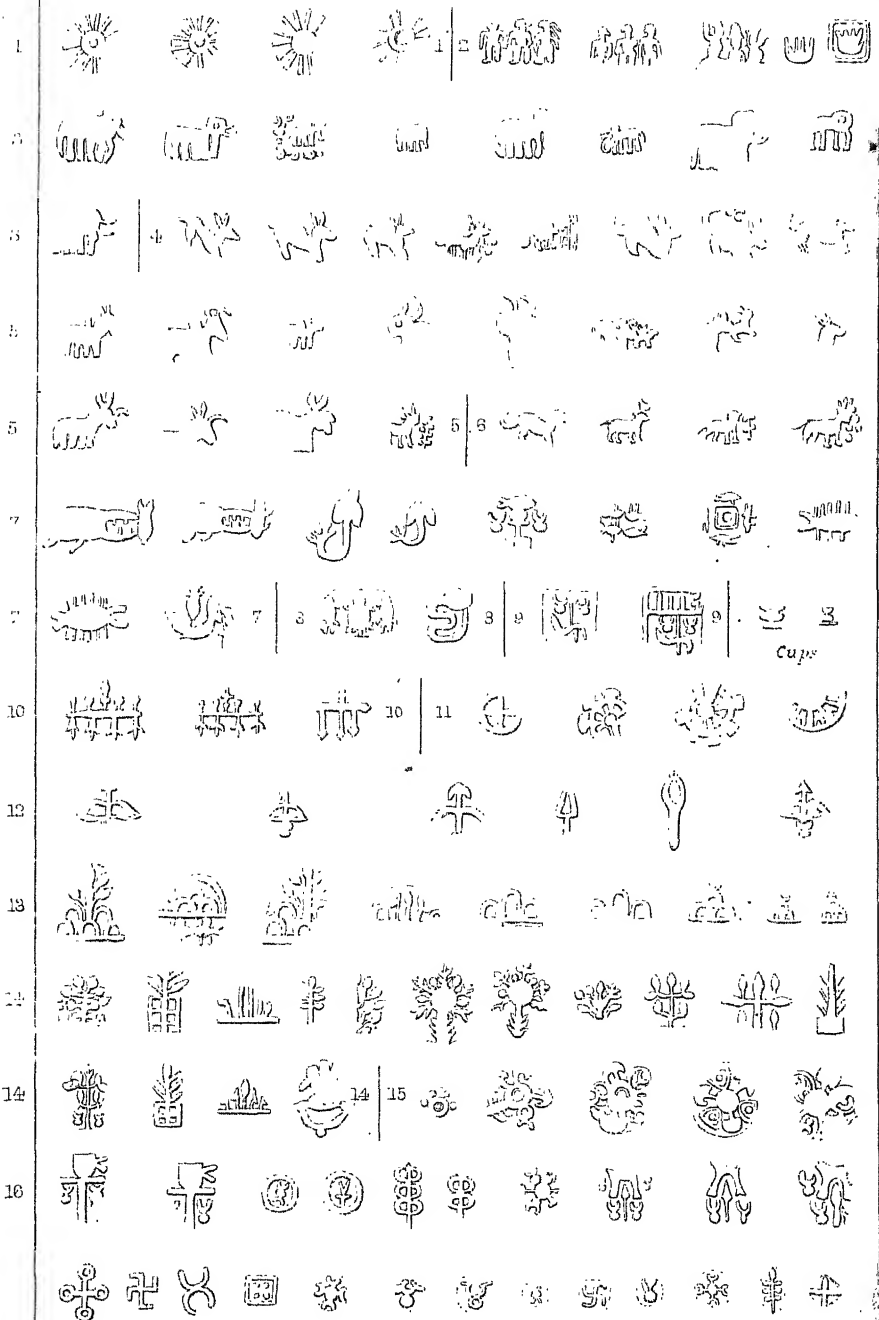 1 1 2
3 4
5
5 5 6
7
7 7 8 8 9 9
Cups
10 10 11
12
13
14
14 14 15
16